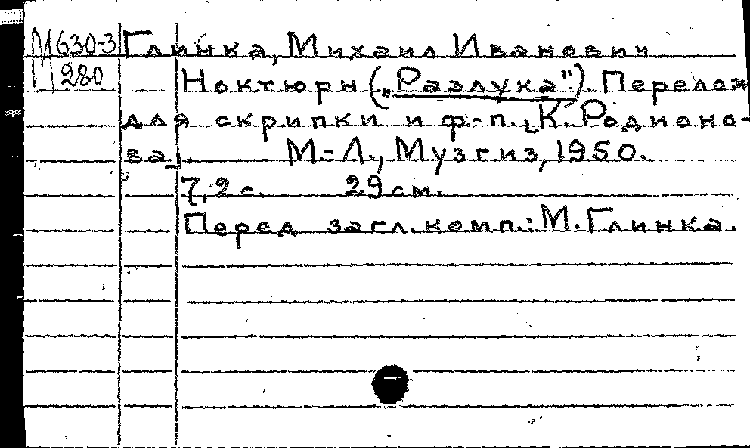 М 630-3 Глинка, Михаил Иванович
280 Ноктюрн („Разлука"). Перелож.
для скрипки и ф.-п. К. Родионо-
ва. М.-Л., Музгиз, 1950.
7,2 с. 29 см.
Перед загл. комп.: М. Глинка.